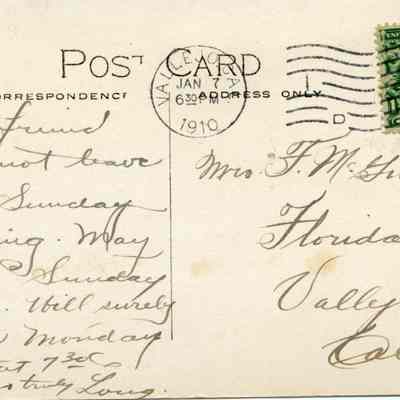 POST CARD
CORRESPONDENCE
ADDRESS ONLY
VALLEJO, CAL.
JAN 7
6 30 PM
1910
D
Friend
not leave
Sunday
ing. May
Sunday
. Will surely
Monday
at 7 30
truly Long.
Mrs F. Mc
Florida
Valley
Cal